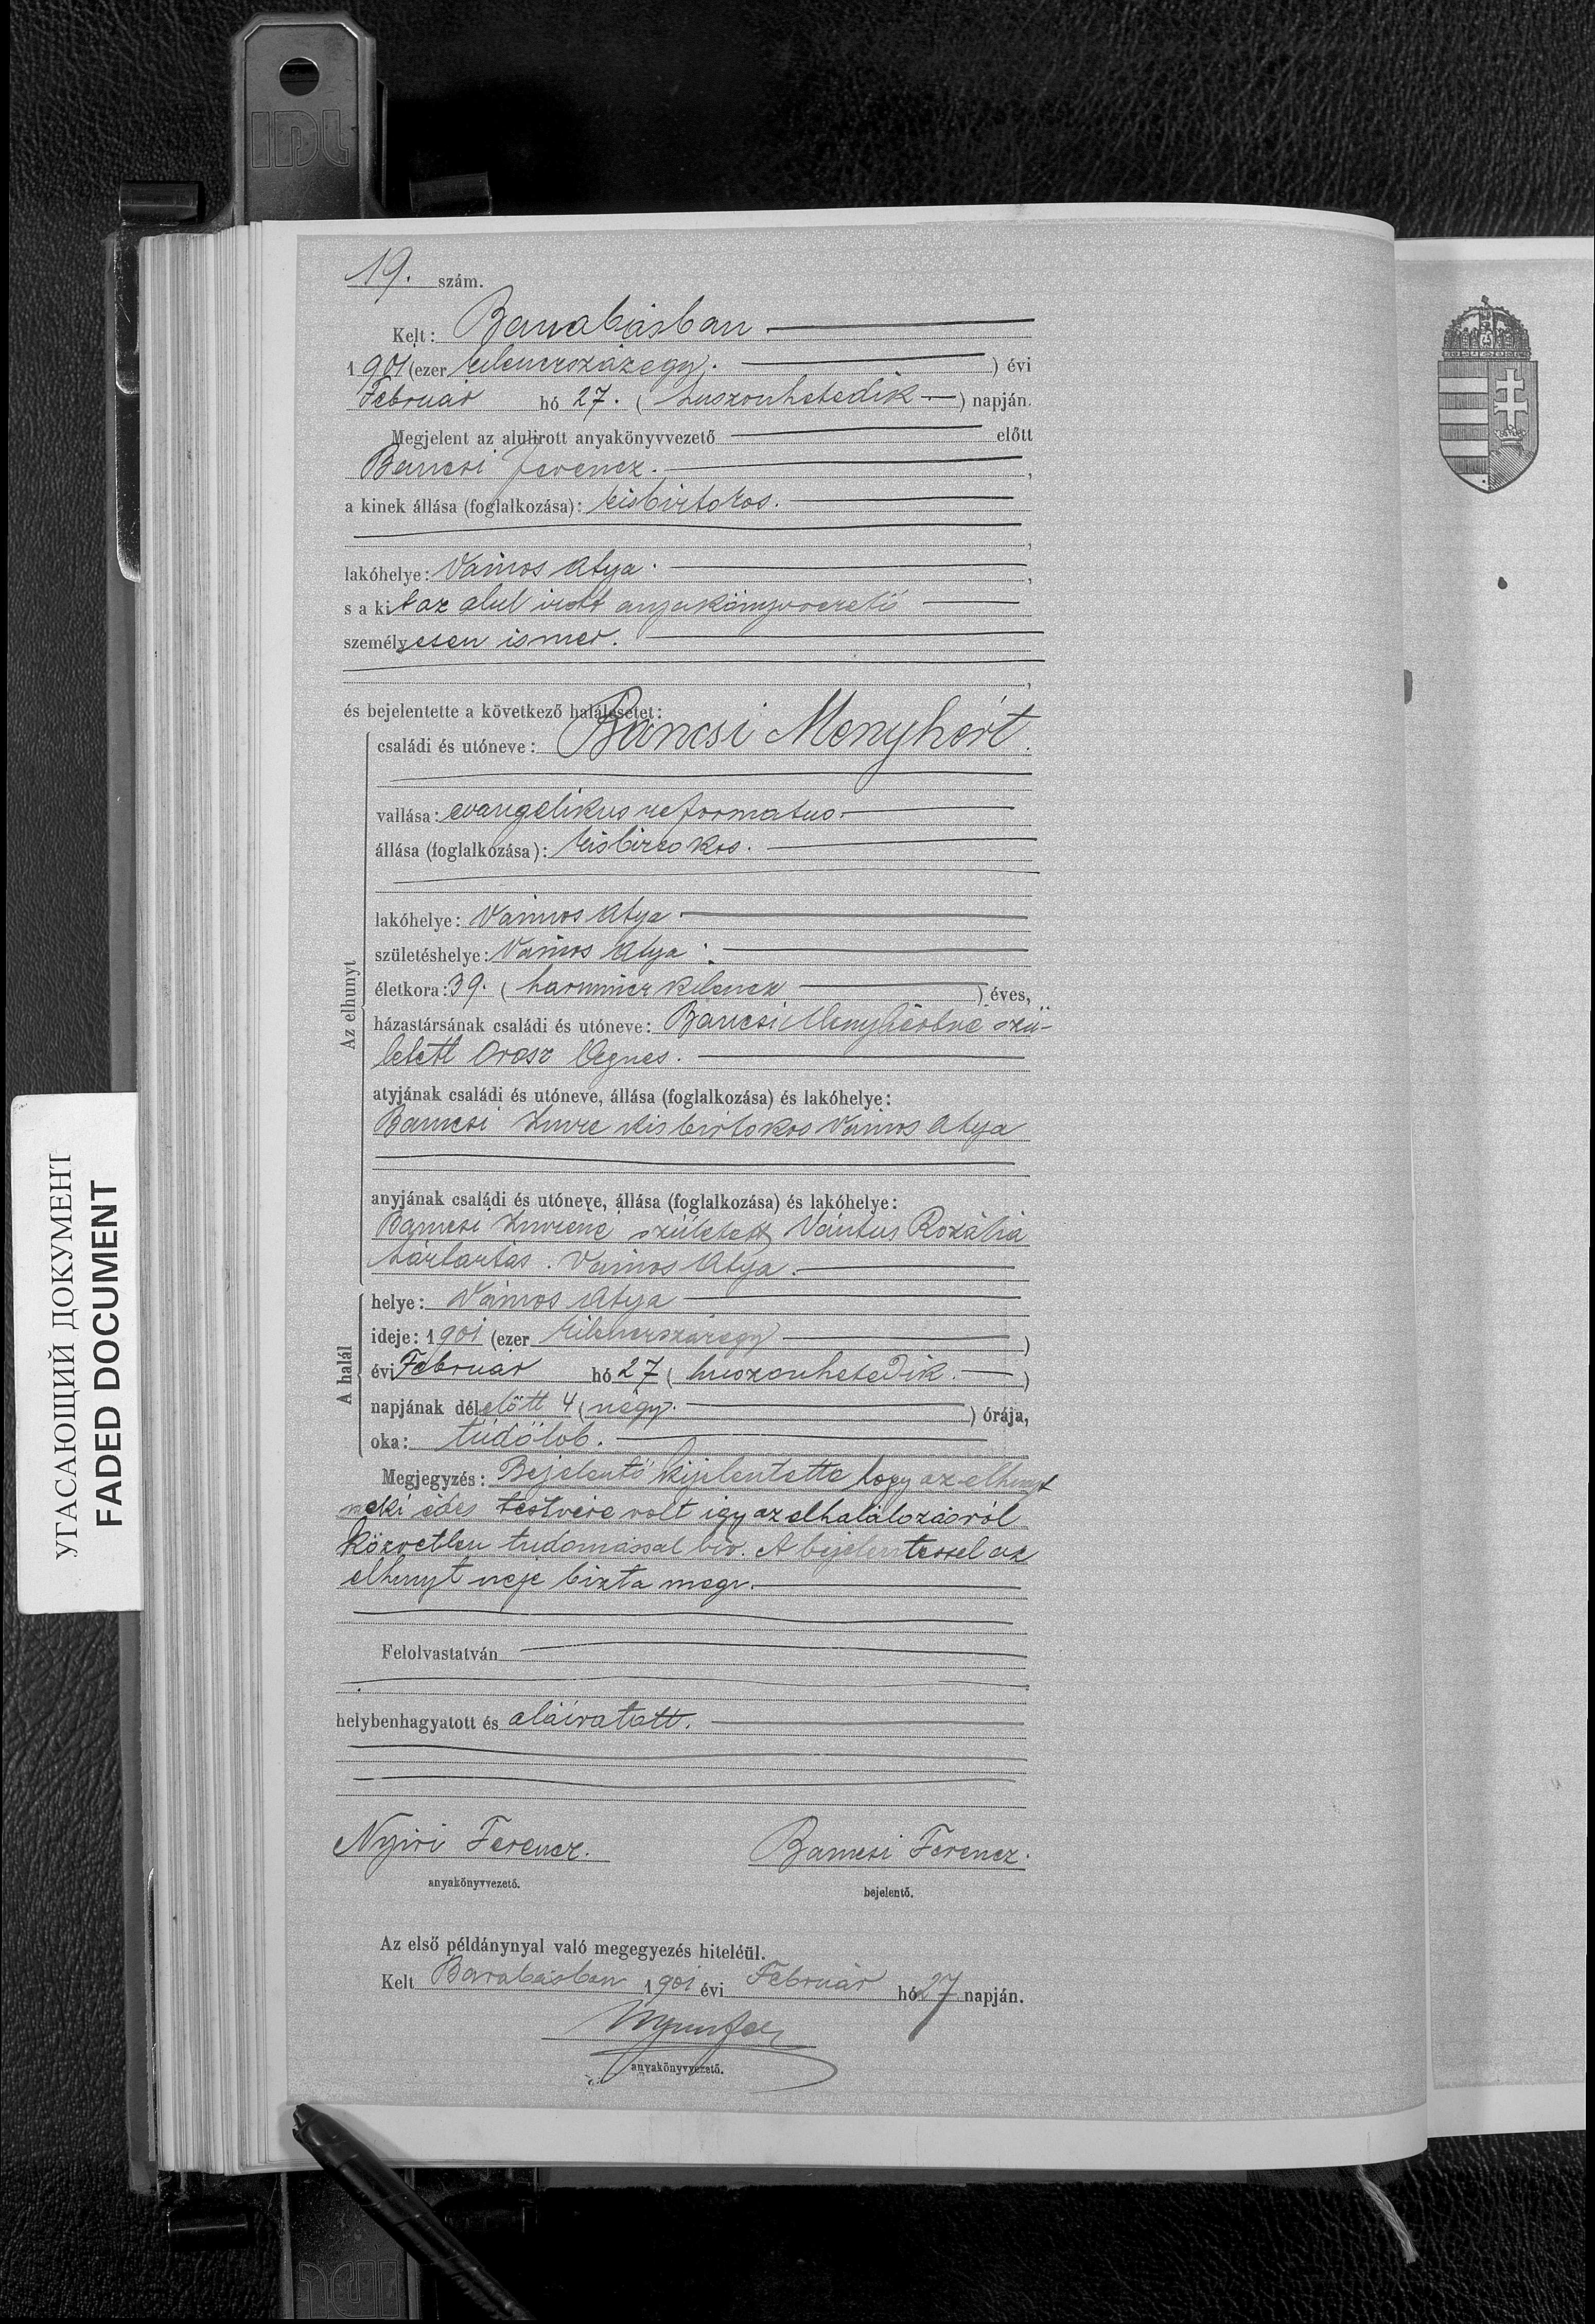 IDL
19. szám.
Kelt: Barabásban
1901 (ezer kilenczszázegy.) évi
Február hó 27. (huszonhetedik) napján.
Megjelent az alulirott anyakönyvvezető előtt
Bancsi Ferencz.,
a kinek állása (foglalkozása): kisbirtokos.
lakóhelye: Vámos Atya.,
s a kit az alul irott anyakönyvvezető
személyesen ismer.
és bejelentette a következő halálesetet:
családi és utóneve: Bancsi Menyhért.
vallása: evangelikus reformatus.
állása (foglalkozása): kisbirtokos.
lakóhelye: Vámos Atya.
születéshelye: Vámos Atya.
életkora: 39. (harminczkilencz) éves,
Az elhunyt
házastársának családi és utóneve: Bancsi Menyhértné szü-
letett Orosz Ágnes.
atyjának családi és utóneve, állása (foglalkozása) és lakóhelye:
Bancsi Imre kisbirtokos Vámos Atya
anyjának családi és utóneve, állása (foglalkozása) és lakóhelye:
Bancsi Imréné született Vántus Rozália
háztartás. Vámos Atya.
A halál
helye: Vámos Atya
ideje: 1901 (ezer kilenczszázegy)
évi Február hó 27 (huszonhetedik.)
napjának délelőtt 4 (négy.) órája,
oka: tüdőlob.
Megjegyzés: Bejelentő kijelentette hogy az elhunyt
neki édes testvére volt igy az elhalálozásról
közvetlen tudomással bir. A bejelentéssel az
elhunyt neje bizta meg.
Felolvastatván
helybenhagyatott és aláiratott.
Nyiri Ferencz. Bancsi Ferencz.
anyakönyvvezető. bejelentő.
Az első példánynyal való megegyezés hiteléül.
Kelt Barabásban 1901 évi Február hó 27 napján.
anyakönyvvezető.
УГАСАЮЩИЙ ДОКУМЕНТ
FADED DOCUMENT
IDL